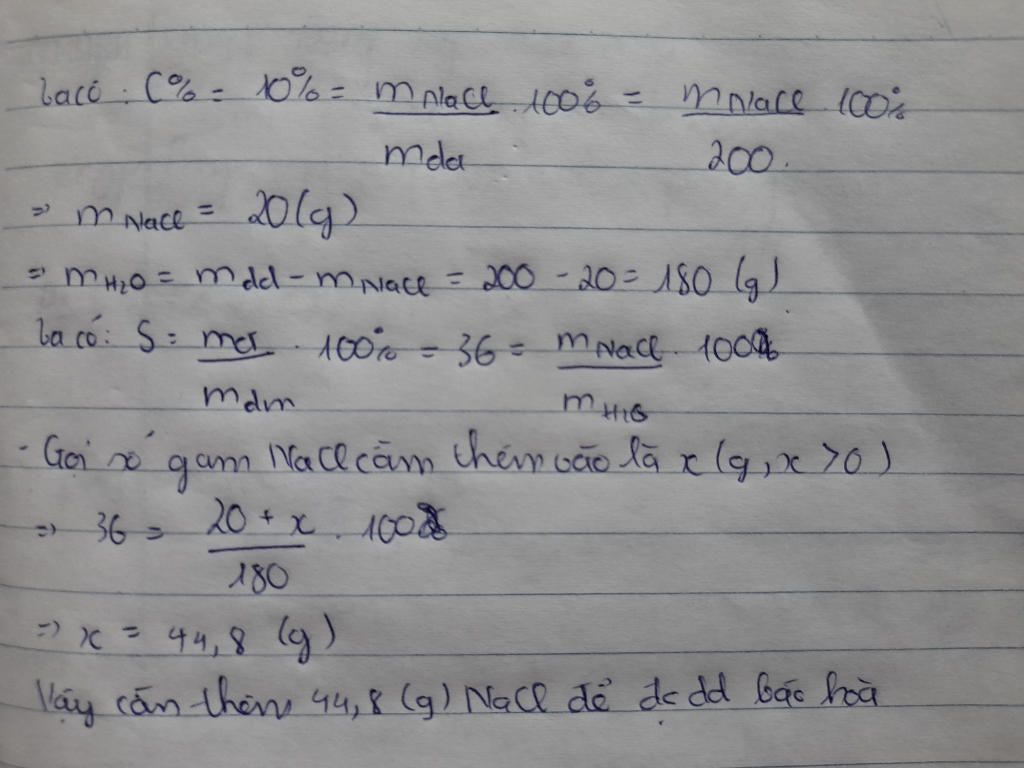 Ta có : C% = 10% = mNaCl/mdd . 100% = mNaCl/200 . 100%
=> mNaCl = 20(g)
=> mH2O = mdd - mNaCl = 200 - 20 = 180 (g)
Ta có: S = mct/mdm . 100% = 36 = mNaCl/mH2O . 100
- Gọi số gam NaCl cần thêm vào là x (g, x > 0)
=> 36 = 20 + x/180 . 100
=> x = 44,8 (g)
Vậy cần thêm 44,8 (g) NaCl để đc dd bão hoà